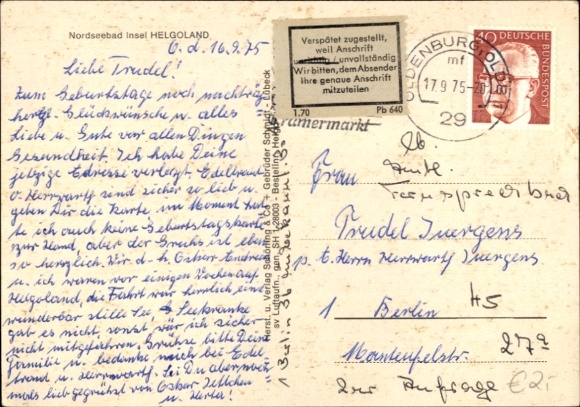 Nordseebad Insel HELGOLAND
O. d. 16.9.75
Liebe Trudel!
Zum Geburtstage noch nachträgl.
herzl. Glückwünsche u. alles
liebe u. Gute vor allen Dingen
Gesundheit. Ich habe Deine
jetzige Adresse verlegt. Edeltraud
o. Herrwarth sind sicher so lieb u.
geben Dir die Karte im Moment hat-
te ich auch keine Geburtstagskarte
zur Hand, aber der Gruß ist eben
so herzlich. Wir d.h. Oskar Andreas
u. ich waren vor einigen Wochen auf
Helgoland, die Fahrt war herrlich eine
wunderbar stille See, Seekranke
gab es nicht, sonst wär ich sicher
nicht mitgefahren. Grüße bitte Deine
Familie u. bedanke mich bei Edel
traud u. Herrwarth. Sei Du abermoch
mals lieb gegrüßt von Oskar
u. Herta!
Herst. u. Verlag Schöning & Co + Gebrüder Schmidt, Lübeck
SH 1-28003 - Bestellnr. Hel
1 Berlin 36 unbekannt
Verspätet zugestellt,
weil Anschrift
/unvollständig
Wir bitten, dem Absender
Ihre genaue Anschrift
mitzuteilen
1.70 Pb 640
OLDENBURG, OLDB
mf
17.9.75-20
29
40 DEUTSCHE
BUNDESPOST
Krämermarkt
Frau
Trudel Juergens
p. t. Herrn Herrwarth Juergens
1 Berlin 45
Manteufelstr. 27a
Zur Anfrage
€ 2,-